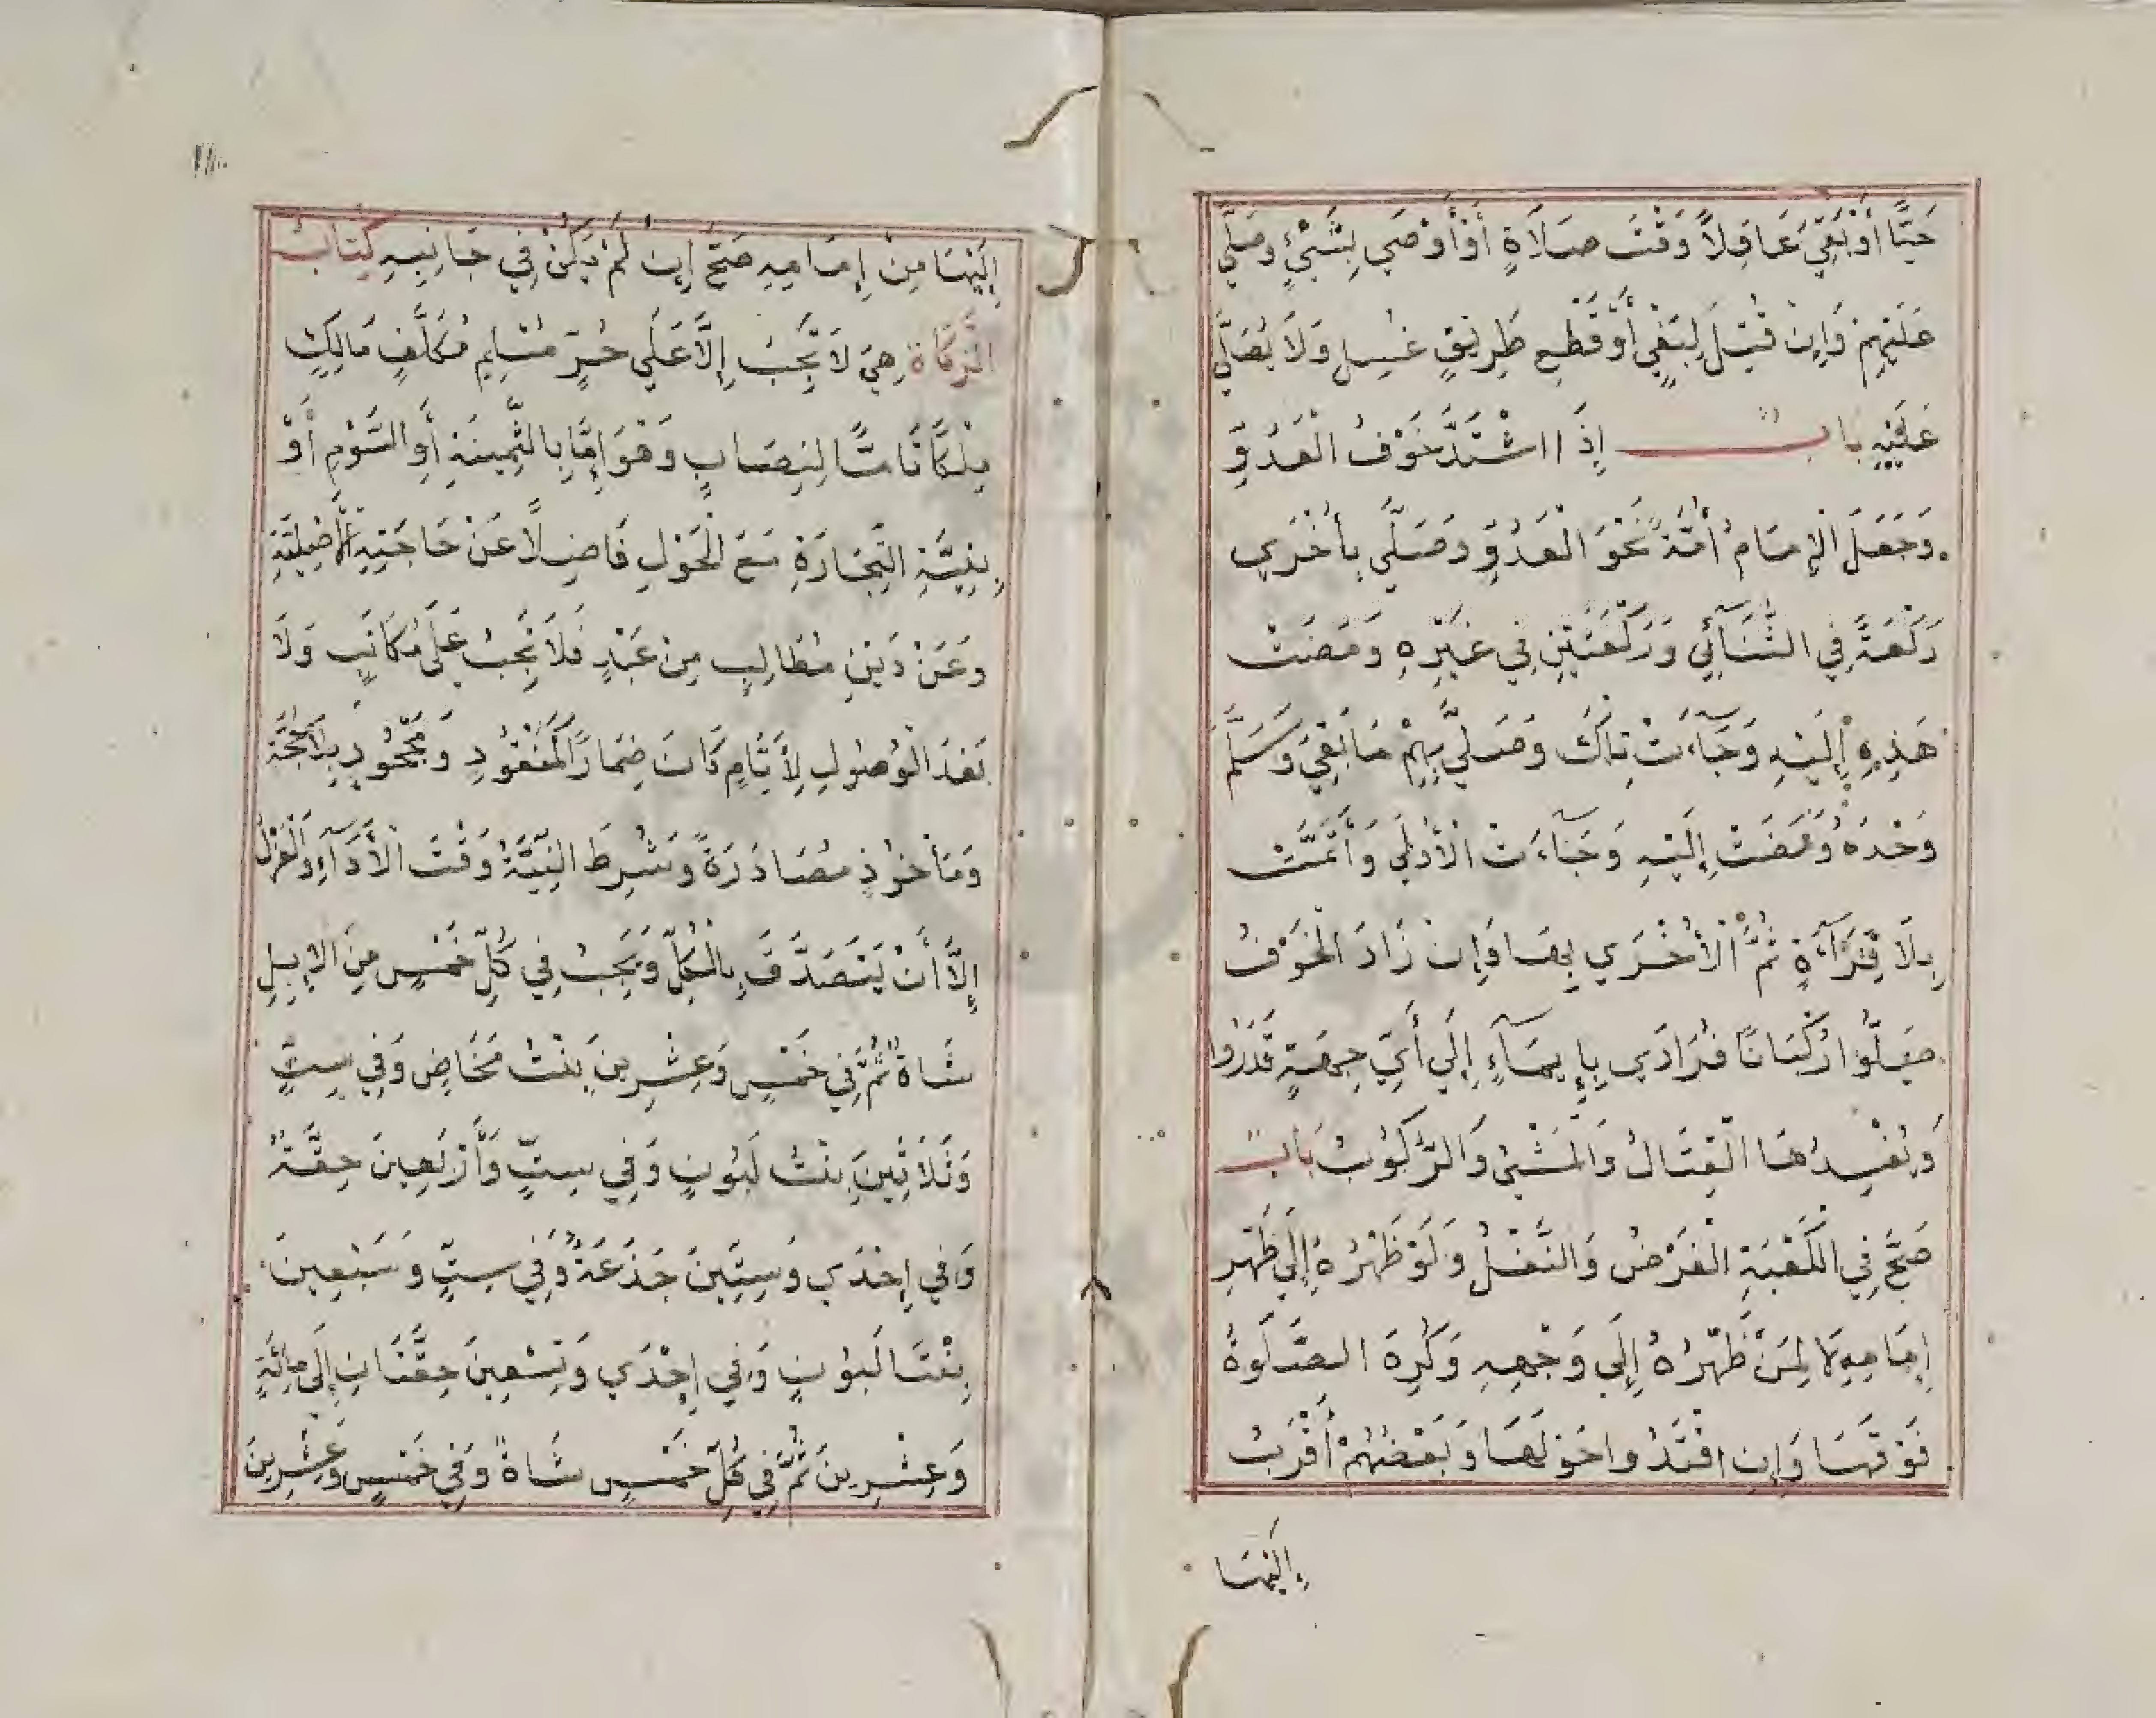 حَيًّا أَوْ بَقِيَ عَاقِلاً وَقْتَ صَلَاةٍ أَوْ أَوْصَي بِشَيْءٍ وصَلَّي
عَلَيْهِمْ وَإِنْ قُتِلَ لِبَغْيٍ أَوْ قَطْعِ طَرِيقٍ غُسِلَ وَلَا يُصَلَّي
عَلَيْهِ بابٌ إِذَا اشْتَدَّ خَوْفُ الْعَدُوِّ
وَجَعَلَ الْإِمَامُ أُمَّةً نَحْوَ الْعَدُوِّ وَصَلَّي بِأُخْرَي
رَكْعَةً فِي الثُّنَآئِي وَرَكْعَتَيْنِ فِي غَيْرِهِ وَمَضَتْ
هَذِهِ إِلَيْهِ وَجَآءَتْ تِلْكَ وَصَلَّي بِهِمْ مَا بَقِيَ وَسَلَّمَ
وَحْدَهُ وَمَضَتْ إِلَيْهِ وَجَآءَتْ الْأُوْلَي وَأَتَمَّتْ
بِلَا قِرَآءَةٍ ثُمَّ الْأُخْرَي بِهَا وَإِنْ زَادَ الْخَوْفُ
صَلُّوا رُكْبَانًا فُرَادَي بِإِيمَآءٍ إِلَي أَيِّ جِهَةٍ قَدَرُوا
وَيُفْسِدُهَا الْقِتَالُ وَالْمَشْيُ وَالرُّكُوبُ بَابٌ
صَحَّ فِي الْكَعْبَةِ الْفَرْضُ وَالنَّفْلُ وَلَوْ ظَهْرُهُ إِلَي ظَهْرِ
إِمَامِهِ لَا لِمَنْ ظَهْرُهُ إِلَي وَجْهِهِ وَكُرِهَ الصَّلَوةُ
فَوْقَهَا وَإِنِ اقْتَدُوا حَوْلَهَا وَبَعْضُهُمْ أَقْرَبُ
إِلَيْهَا
إِلَيْهَا مِنْ إِمَامِهِ صَحَّ إِنْ لَمْ يَكُنْ فِي جَانِبِهِ كِتَابُ
الزَّكَاةِ هِيَ لَا تَجِبُ إِلَّا عَلَي حُرٍّ مُسْلِمٍ مُكَلَّفٍ مَالِكٍ
مِلْكًا تَامًّا لِنِصَابٍ وَهُوَ إِمَّا بِالثَّمِينَةِ أَوِ السَّوْمِ أَوْ
بِنِيَّةِ التِّجَارَةِ مَعَ الْحَوْلِ فَاضِلًا عَنْ حَاجَتِهِ الْأَصْلِيَّةِ
وعَنْ دَيْنٍ مُطَالِبٍ مِنْ عَبْدٍ فَلَا تَجِبُ عَلَي مُكَاتَبٍ وَلَا
بَعْدَ الْوُصُولِ لِأَيَّامٍ كَانَ ضِمَارًا كَمَفْقُودٍ وَمَجْحُودٍ بِلَا حُجَّةٍ
وَمَأْخُوذٍ مُصَادَرَةً وَشُرِطَ النِّيَّةُ وَقْتَ الْأَدَآءِ وَالْعَزْلِ
إِلَّا أَنْ يَتَصَدَّقَ بِالْكُلِّ وَيَجِبُ فِي كُلِّ خَمْسٍ مِنَ الْإِبِلِ
شَاةٌ ثُمَّ فِي خَمْسٍ وَعِشْرِينَ بِنْتُ مَخَاضٍ وَفِي سِتٍّ
وَثَلَاثِينَ بِنْتُ لَبُونٍ وَفِي سِتٍّ وَأَرْبَعِينَ حِقَّةٌ
وَفِي إِحْدَي وَسِتِّينَ جَذَعَةٌ وَفِي سِتٍّ وَسَبْعِينَ
بِنْتَا لَبُونٍ وَفِي إِحْدَي وَتِسْعِينَ حِقَّتَانِ إِلَي مِائَةٍ
وَعِشْرِينَ ثُمَّ فِي كُلِّ خَمْسٍ شَاةٌ وَفِي خَمْسٍ وَعِشْرِينَ